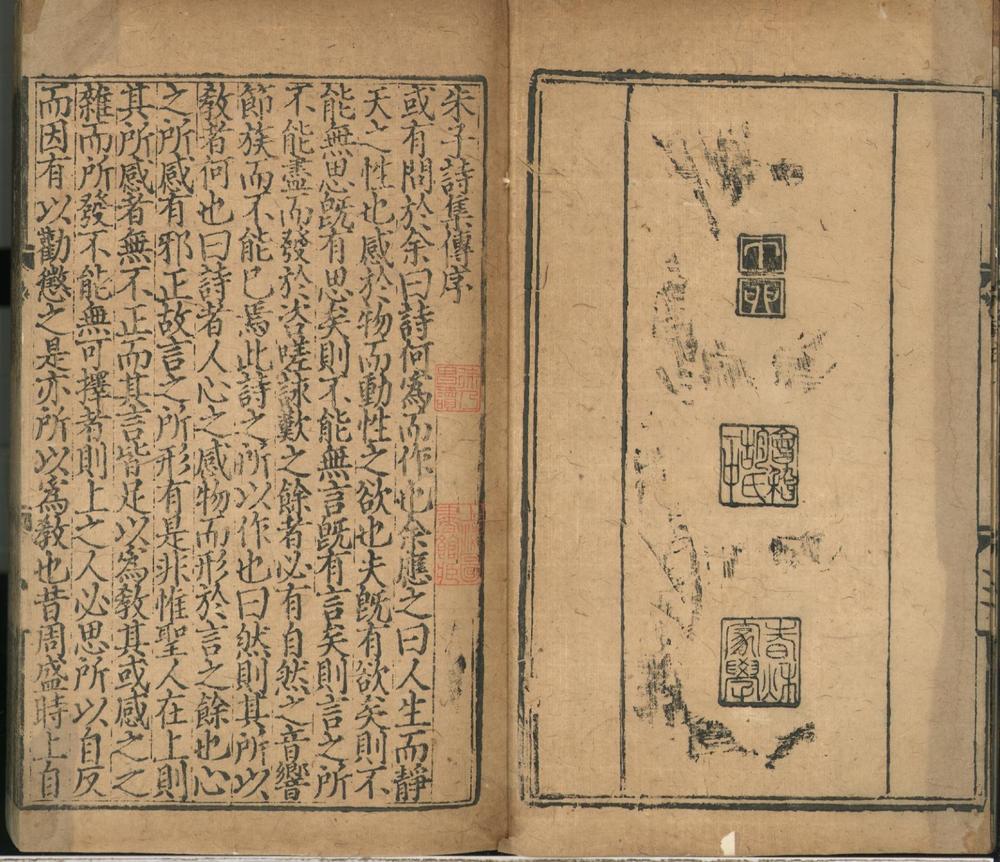 會稽
胡氏
春秋
家學
朱子詩集傳序
或有問於余曰詩何爲而作也余應之曰人生而靜
天之性也感於物而動性之欲也夫旣有欲矣則不
能無思旣有思矣則不能無言旣有言矣則言之所
不能盡而發於咨嗟詠歎之餘者必有自然之音響
節族而不能已焉此詩之所以作也曰然則其所以
教者何也曰詩者人心之感物而形於言之餘也心
之所感有邪正故言之所形有是非惟聖人在上則
其所感者無不正而其言皆足以爲教其或感之之
雜而所發不能無可擇者則上之人必思所以自反
而因有以勸懲之是亦所以爲教也昔周盛時上自